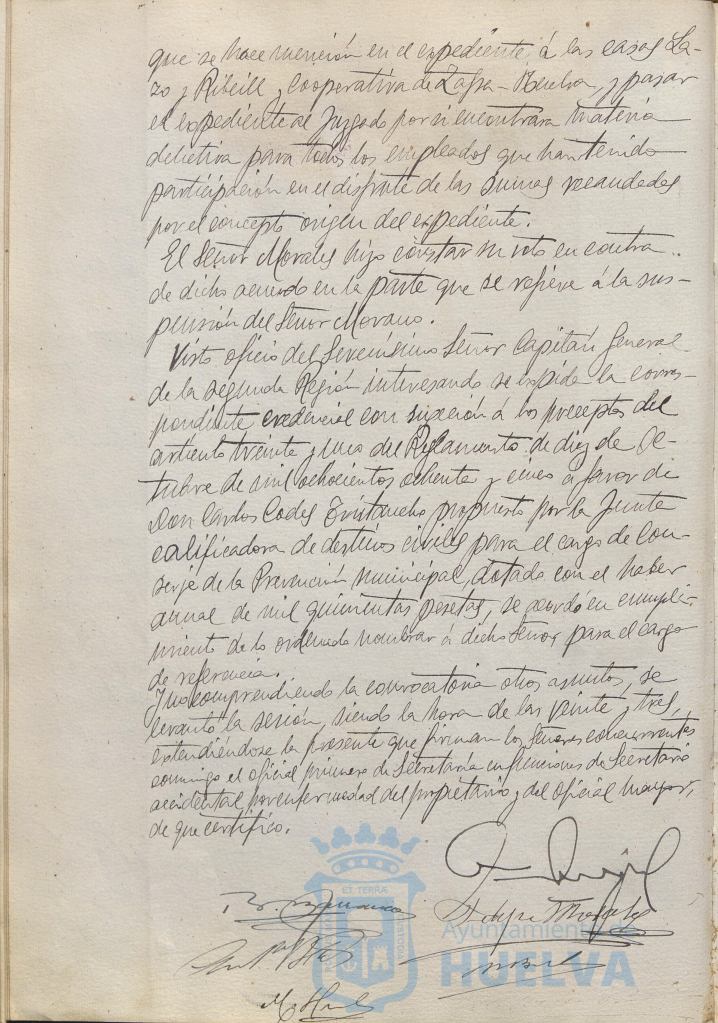 que se hace mención en el expediente, á las casas La-
zo y Ribeill y Cooperativa de Zafra-Huelva, y pasar
el expediente al Juzgado por si encontrara materia
delictiva para todos los empleados que han tenido
participación en el disfrute de las sumas recaudadas
por el concepto origen del expediente.
El Señor Morales hizo constar su voto en contra
de dicho acuerdo en la parte que se refiere á la sus-
pensión del Señor Morano.
Visto oficio del Serenísimo Señor Capitán General
de la Segunda Región interesando se expida la corres-
pondiente credencial con sujeción á los preceptos del
artículo treinta y uno del Reglamento de diez de Oc-
tubre de mil ochocientos ochenta y cinco a favor de
Don Carlos Codes propuesto por la Junta
calificadora de destinos civiles para el cargo de Con-
serje de la Prevención Municipal, dotada con el haber
anual de mil quinientas pesetas, se acordó en cumpli-
miento de lo ordenado nombrar á dicho Señor para el cargo
de referencia.
Y no comprendiendo la convocatoria otros asuntos, se
levantó la sesión, siendo la hora de las veinte y tres,
extendiéndose la presente que firman los Señores concurrentes
conmigo el oficial primero de Secretaría en funciones de Secretario
accidental por enfermedad del propietario y del oficial mayor,
de que certifico.
ET TERRAE
CUSTODIA
Ayuntamiento de
HUELVA